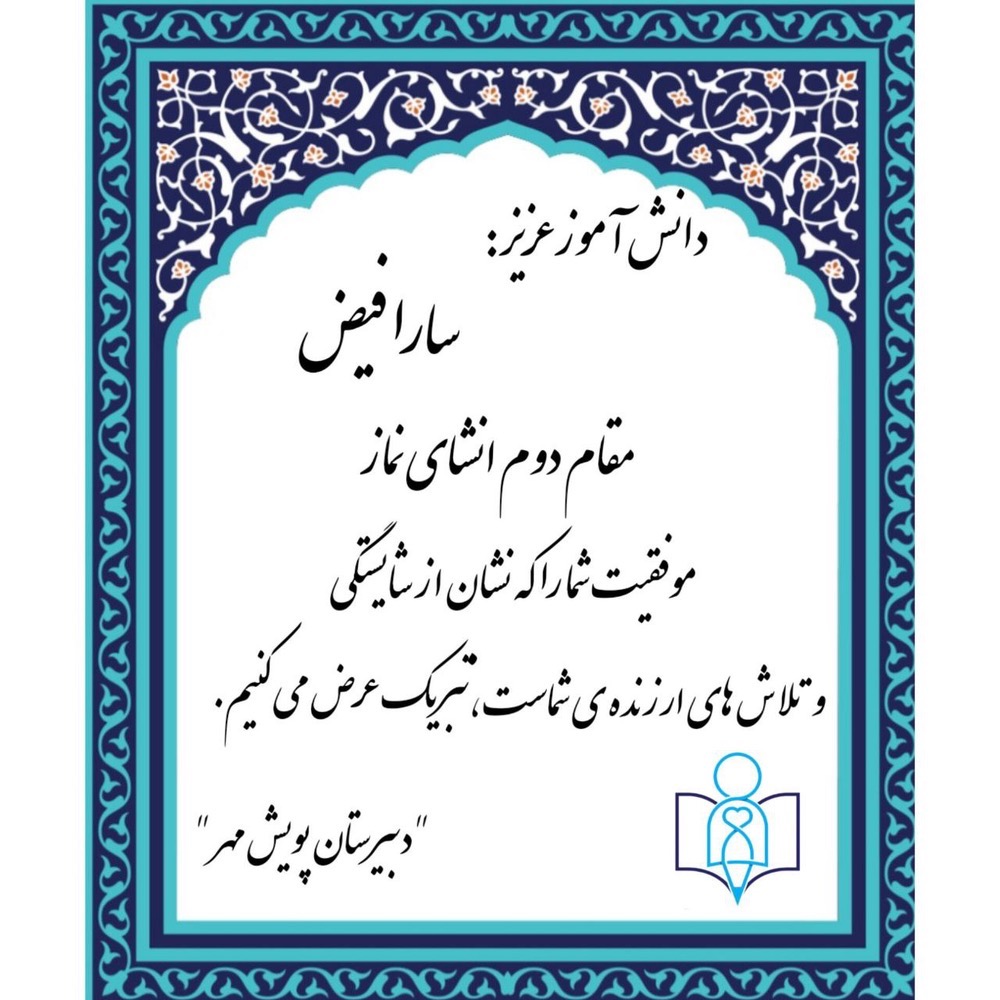 دانش آموز عزیز:
سارا فیض
مقام دوم انشای نماز
موفقیت شما را که نشان از شایستگی
و تلاش های ارزنده ی شماست، تبریک عرض می کنیم.
"دبیرستان پویش مهر"